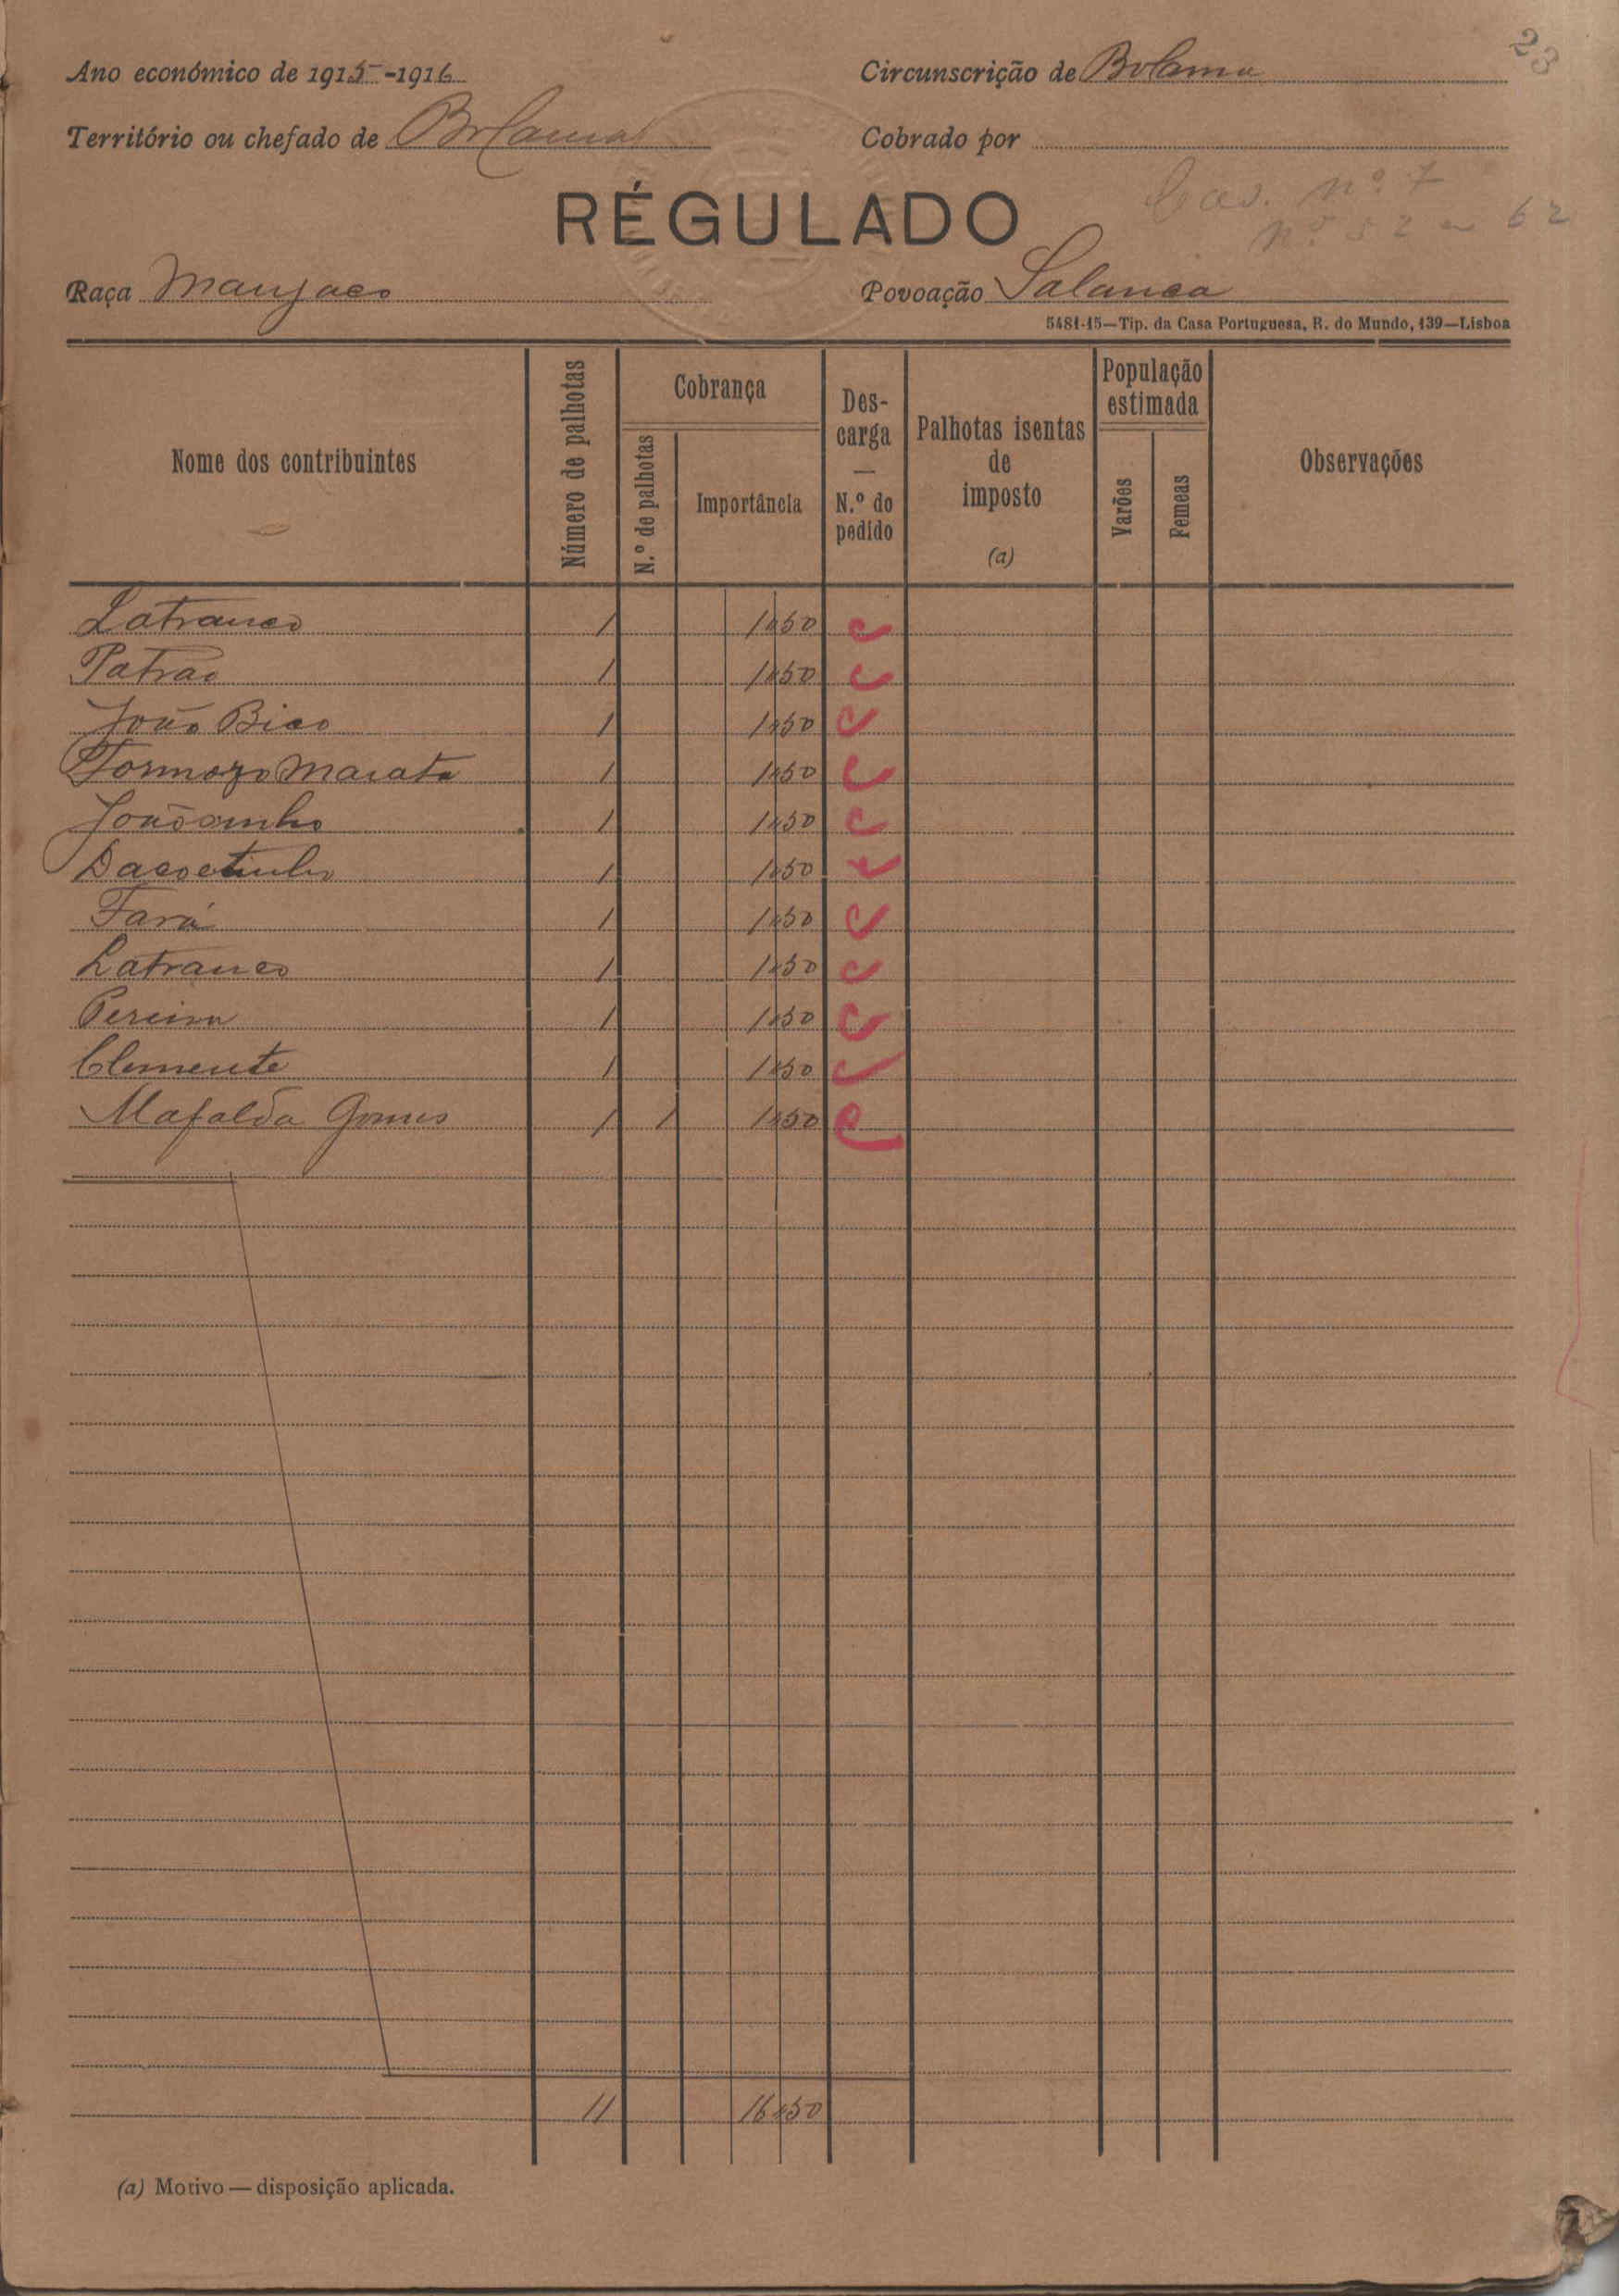 23
Ano económico de 1915-1916 Circunscrição de Bolama
Território ou chefado de Bolama Cobrado por
Cad. nº 7
nº 52 a 62
RÉGULADO
Raça Manjaco Povoação Salanca
5481-15—Tip. da Casa Portuguesa, R. do Mundo, 139—Lisboa
Nome dos contribuintes Número de palhotas Cobrança N.º de palhotas Importância Descarga — N.º do pedido Palhotas isentas de imposto (a) População estimada Varões Femeas Observações
Latranco 1 1$50
Patrão 1 1$50
João Bico 1 1$50
Formozo Marata 1 1$50
Joãosinho 1 1$50
1 1$50
Fará 1 1$50
Latranco 1 1$50
Pereira 1 1$50
Clemente 1 1$50
Mafalda Gomes 1 1 1$50
11 16$50
(a) Motivo — disposição aplicada.